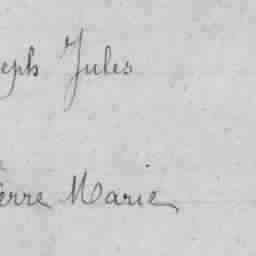 eph Jules
erre Marie